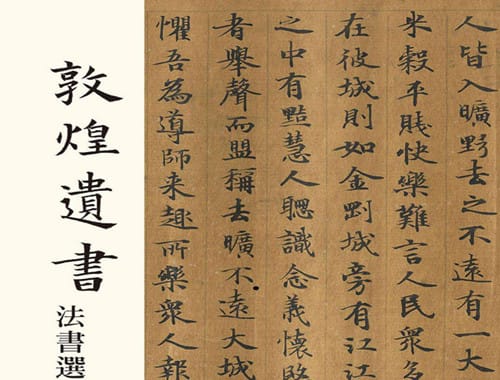 敦煌遺書
法書選
人皆入曠野去之不遠有一大
米穀平賤快樂難言人民衆多
在彼城則如金剛城旁有江江
之中有黠慧人聰識念義懷
者舉聲而盟稱去曠不遠大城
懼吾為導師来趣所樂衆人報